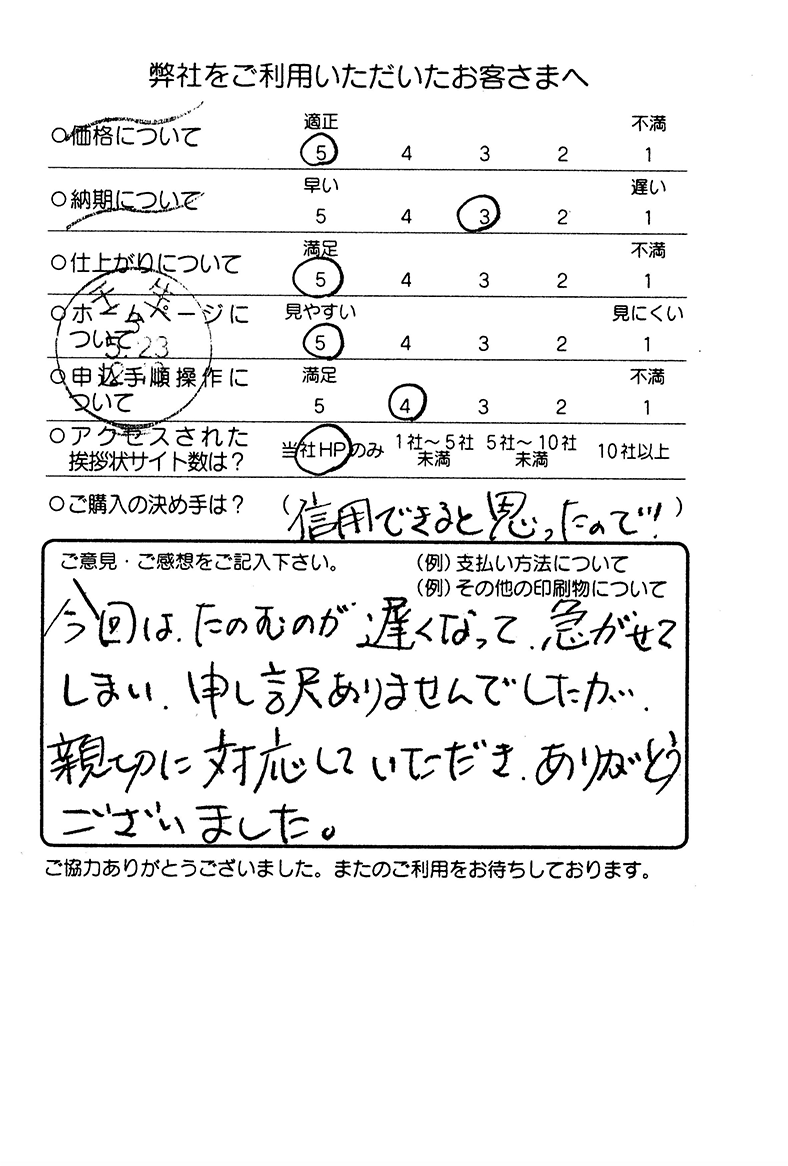 弊社をご利用いただいたお客さまへ
○価格について 適正 不満
5 4 3 2 1
○納期について 早い 遅い
5 4 3 2 1
○仕上がりについて 満足 不満
5 4 3 2 1
○ホームページに 見やすい 見にくい
ついて 5 4 3 2 1
○申込手順操作に 満足 不満
ついて 5 4 3 2 1
○アクセスされた 当社HPのみ 1社～5社 5社～10社 10社以上
挨拶状サイト数は? 未満 未満
○ご購入の決め手は? (信用できると思ったので!!)
ご意見・ご感想をご記入下さい。 (例)支払い方法について
(例)その他の印刷物について
今回は、たのむのが遅くなって、急がせて
しまい、申し訳ありませんでしたが、
親切に対応していただき、ありがとう
ございました。
ご協力ありがとうございました。またのご利用をお待ちしております。
千葉
5
5.23